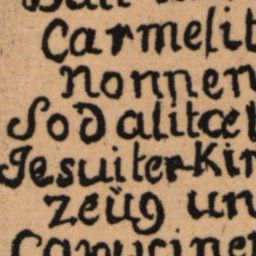 Carmelit
nonnen
Sodalitæt
Jesuiter-Kir
zeüg un
Capuciner